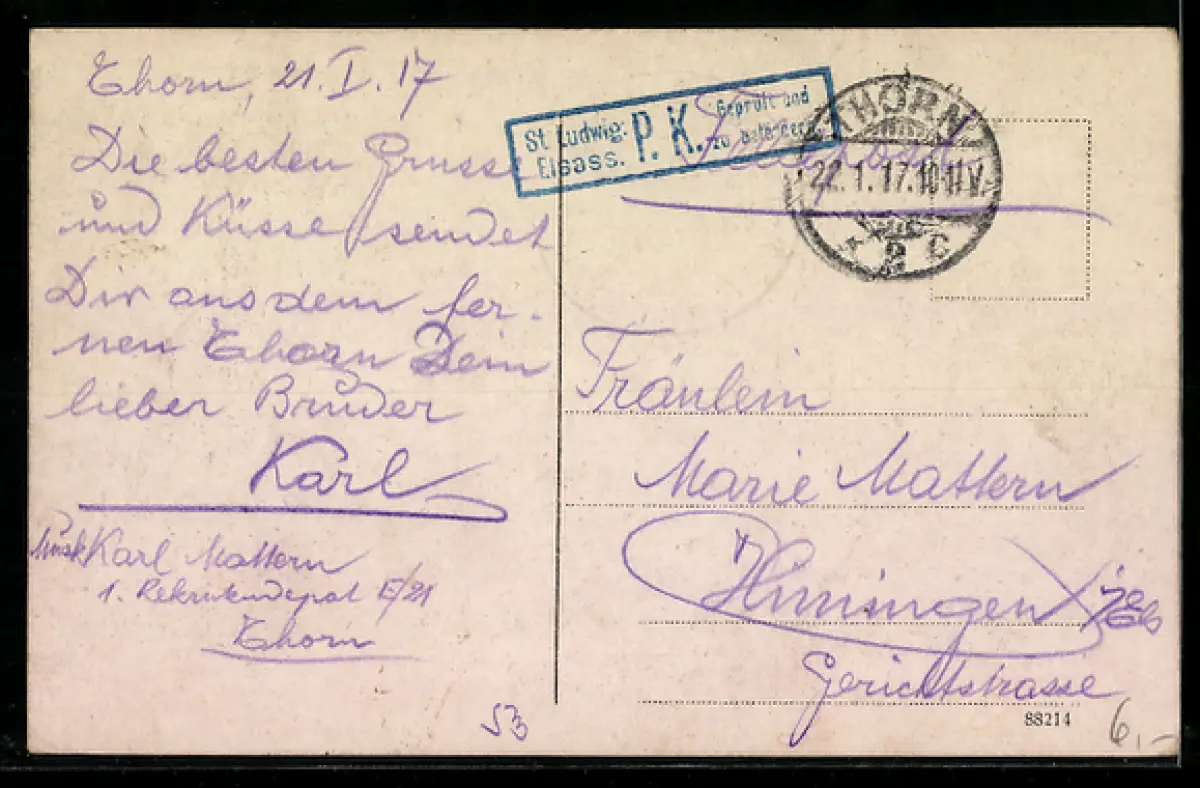 Thorn, 21.I.17
Die besten Grüsse
und Küsse sendet
Dir aus dem fer-
nen Thorn Dein
lieber Bruder
Karl
Musk. Karl Mattern
1. Rekrutendepot E/21
Thorn
53
St. Ludwig: P. K. Geprüft und
Elsass. zu befördern
Feldpost
THORN
22.1.17.10-11V.
* 2 c
Fräulein
Marie Mattern
Hüningen i/Els
Gerichtstrasse
88214
6,-